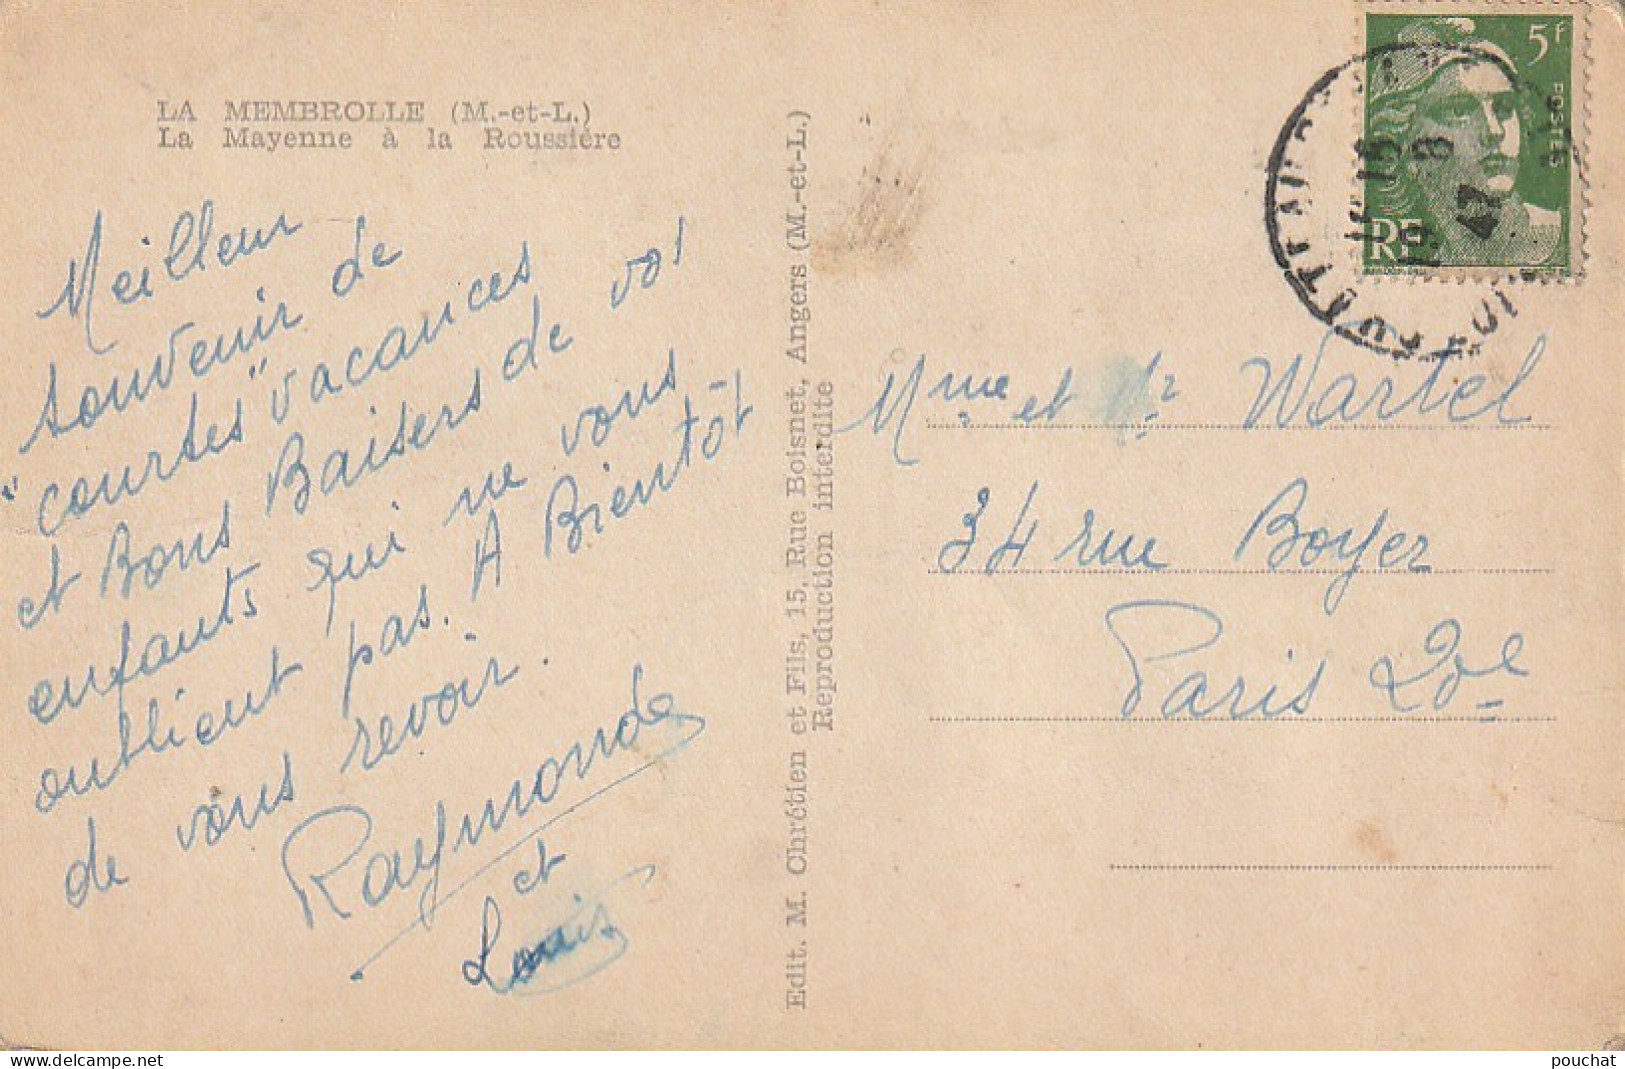 LA MEMBROLLE (M.-et-L.)
La Mayenne à la Roussière
Meilleur
souvenir de
"courtes" vacances
et Bons Baisers de vos
enfants qui ne vous
oublient pas. A Bientôt
de vous revoir.
Raymonde
et
Louis
Edit. M. Chrétien et Fils, 15, Rue Boisnet, Angers (M.-et-L.)
Reproduction interdite
5F
POSTES
RF
15
8
47
Mme et Mr Wartel
34 rue Boyer
Paris 20e
pouchat